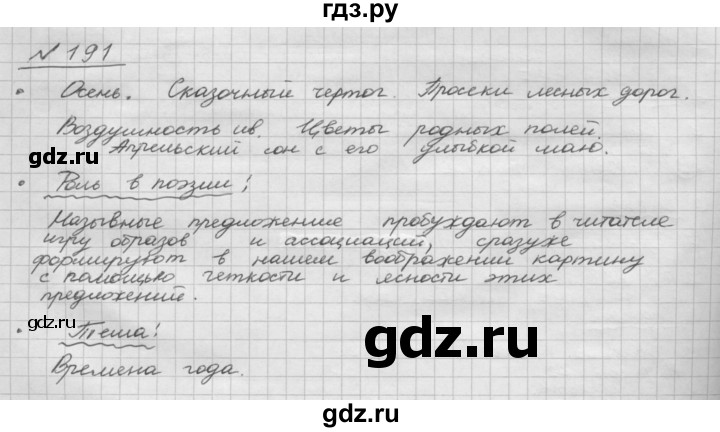 гдз.ру
№ 191
• Осень. Сказочный чертог. Просеки лесных дорог.
Воздушность ив. Цветы родных полей.
Апрельский сон с его улыбкой маю.
• Роль в поэзии:
Назывные предложение пробуждают в читателе
игру образов и ассоциаций, сразуже
формируют в нашем воображении картину
с помощью четкости и ясности этих
предложений.
• Тема:
Времена года.
gdz.ru
gdz.ru
gdz.ru
gdz.ru
gdz.ru
gdz.ru